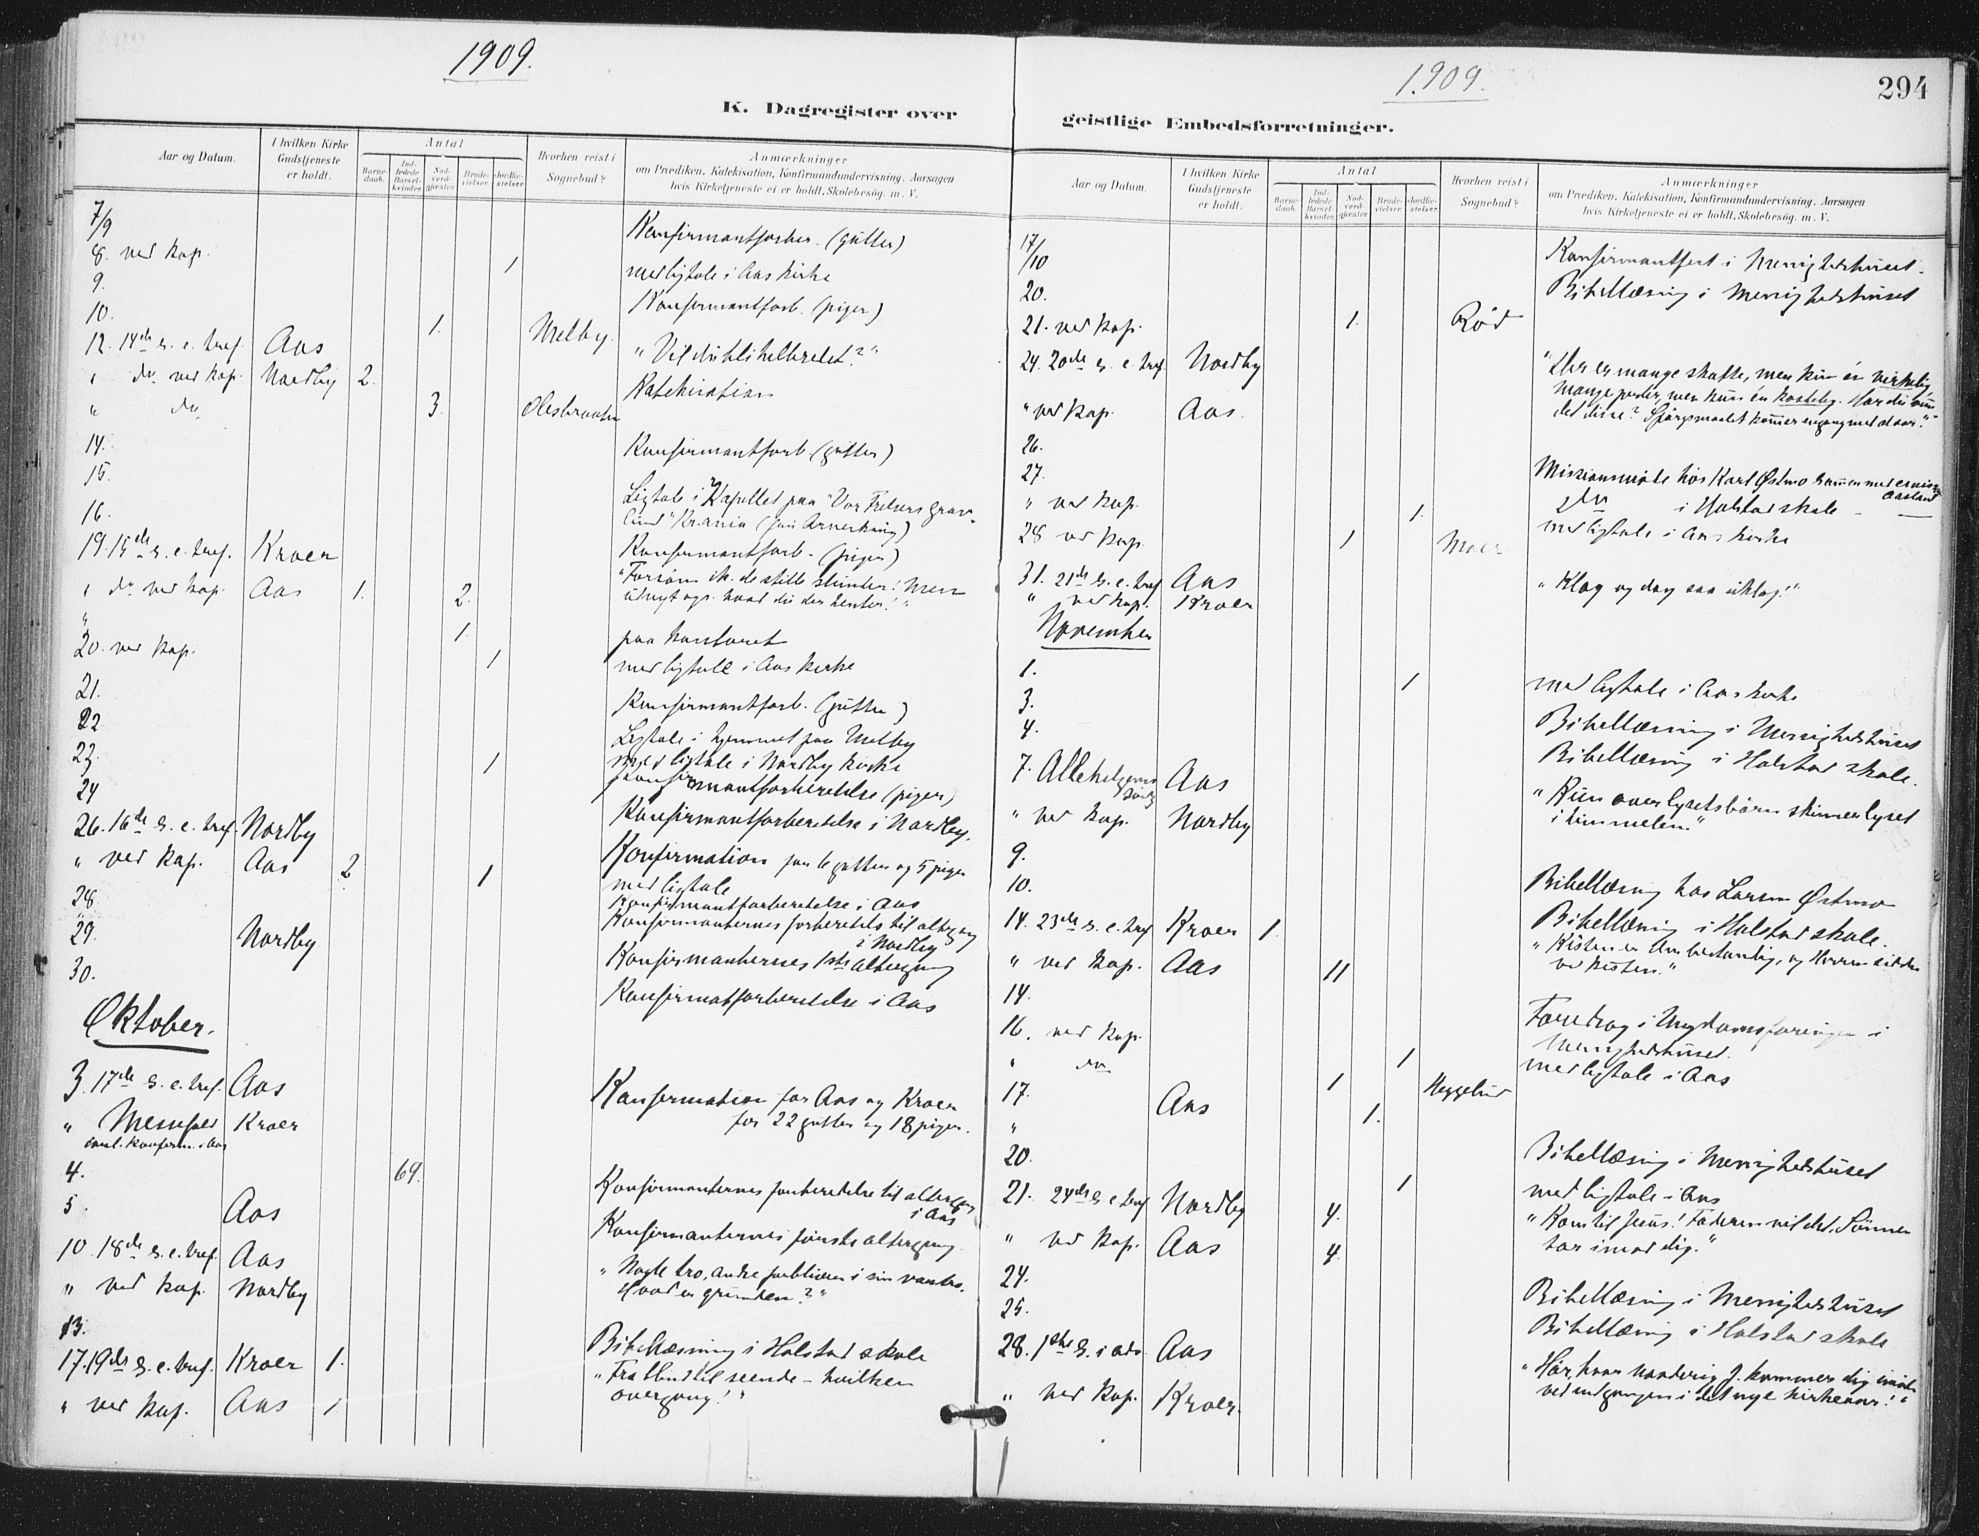 1909.
K. Dagregister over
Aar og Datum.
I hvilken Kirke Gudstjeneste er holdt.
Antal
Barnedaab.
Indledede Barselkvinder.
Nadverdgjæster
Brudevielser.
Jordfæstelser
Hvorhen reist i Sognebud?
Anmærkninger
om Prædiken, Katekisation, Konfirmandundervisning, Aarsagen
hvis Kirketjeneste ei er holdt, Skolebesøg, m. V.
7/9 Konfirmantforber. (gutter)
8. ved kap. 1 med ligtale i Aas kirke
9. Konfirmantforb. (piger)
10. 1. Melby
12. 14de s. e. tref. Aas "Vil du bli helbredet?"
" do ved kap. Nordby 2. Katekisation
" do 3.
14. Konfirmantforb. (gutter)
15. Ligtale i Kapellet paa "Vor Frelsers grav-
lund" Kr.ania
16. Konfirmantforb. (piger)
19. 15de s. e. tref. Kroer "Forsøm ik. de stille stunder! Men
" do ved kap. Aas 1. 2.
" 1. paa kontoret
20. ved kap. 1 med ligtale i Aas kirke
21. Konfirmantforb. (gutter)
22 Ligtale i hjemmet paa Melby
23. 1 med ligtale i Nordby kirke
24 Konfirmantforberedelse (piger)
Konfirmantforberedelse i Nordby.
26. 16de s. e. tref. Nordby Konfirmation for 6 gutter og 5 piger
" ved kap. Aas 2 1 med ligtale
28. Konfirmantforberedelse i Aas
29. Nordby Konfirmanternes forberedels til altergang
i Nordby
Konfirmanternes 1ste altergang
30. Konfirmatforberedelse i Aas
Oktober.
3. 17de s. e. tref. Aas Konfirmation for Aas og Kroer
" Messefald Kroer for 22 gutter og 18 piger.
saml. konferm. i Aas
4. 69. Konfirmanternes forberedelse til altergg
i Aas
5. Aas Konfirmanternes første altergang
10. 18de s. e. tref. Aas "Nogle tro, andre forbliver i sin vantro.
" ved kap. Nordby Hvad er grunden?"
13. Bibellæsning i Holstad skole
17. 19de s. e. tref. Kroer 1. "Fra blind til seende – hvilken
" ved kap. Aas 1 overgang!"
1909.
294
geistlige Embedsforretninger.
Aar og Datum.
I hvilken Kirke Gudstjeneste er holdt.
Antal
Barnedaab.
Indledede Barselkvinder.
Nadverdgjæster
Brudevielser
Jordfæstelser
Hvorhen reist i Sognebud?
Anmærkninger
om Prædiken, Katekisation, Konfirmandundervisning, Aarsagen
hvis Kirketjeneste ei er holdt, Skolebesøg, m. V.
17/10 Konfirmantfest i Menighedshuset.
20. Bibellæsning i Menighedshuset
21. ved kap. 1. Rød
24. 20de s. e. tref. Nordby "Der er mange skatte, men kun én virkelig,
mange perler, men kun én kostelig. Har du fun-
" ved kap. Aas. det disse? Spørgsmaalet kommer engang med
26.
27. Missionsmøte hos Karl Østmo sammen med
" ved kap. 1. do i Holstad skole
28 ved kap. 1 Moer med ligtale i Aas kirke
31. 21de s. e. tref. Aas "Klog og dog saa uklog!"
" ved kap. Kroer
November
1. 1 med ligtale i Aas kirke
3. Bibellæsning i Menighedshuset
4. Bibellæsning i Holstad skole.
7. Allehelgens Aas "Kun over lysets børn skinner lyset
" ved kap. Nordby i himmelen."
9. Bibellæsning hos Larsen Østmo
10. Bibellæsning i Holstad skole.
14. 23de s. e. tref. Kroer 1. "Kisten er ubestandig, og Herren sidder
ved kisten."
" ved kap. Aas 11
14. Foredrag i Ungdomsforeningen i
Menighedshuset.
16. ved kap. 1 med ligtale i Aas
" do 1 Heggelund
17. Aas 1.
"
20. Bibellæsning i Menighedshuset
21. 24de s. e. tref. Nordby 1 med ligtale i Aas
4. "Kom til Jesus! Faderen vil det, Sønnen
" ved kap. Aas 4 tar imod dig."
24. Bibellæsning i Menighedshuset
25. Bibellæsning i Holstad skole
28. 1ste s. i adv. Aas "Hør, hvor J. kommer dig imøte
" ved kap. Kroer. ved indgangen i det nye kirkeaar!"